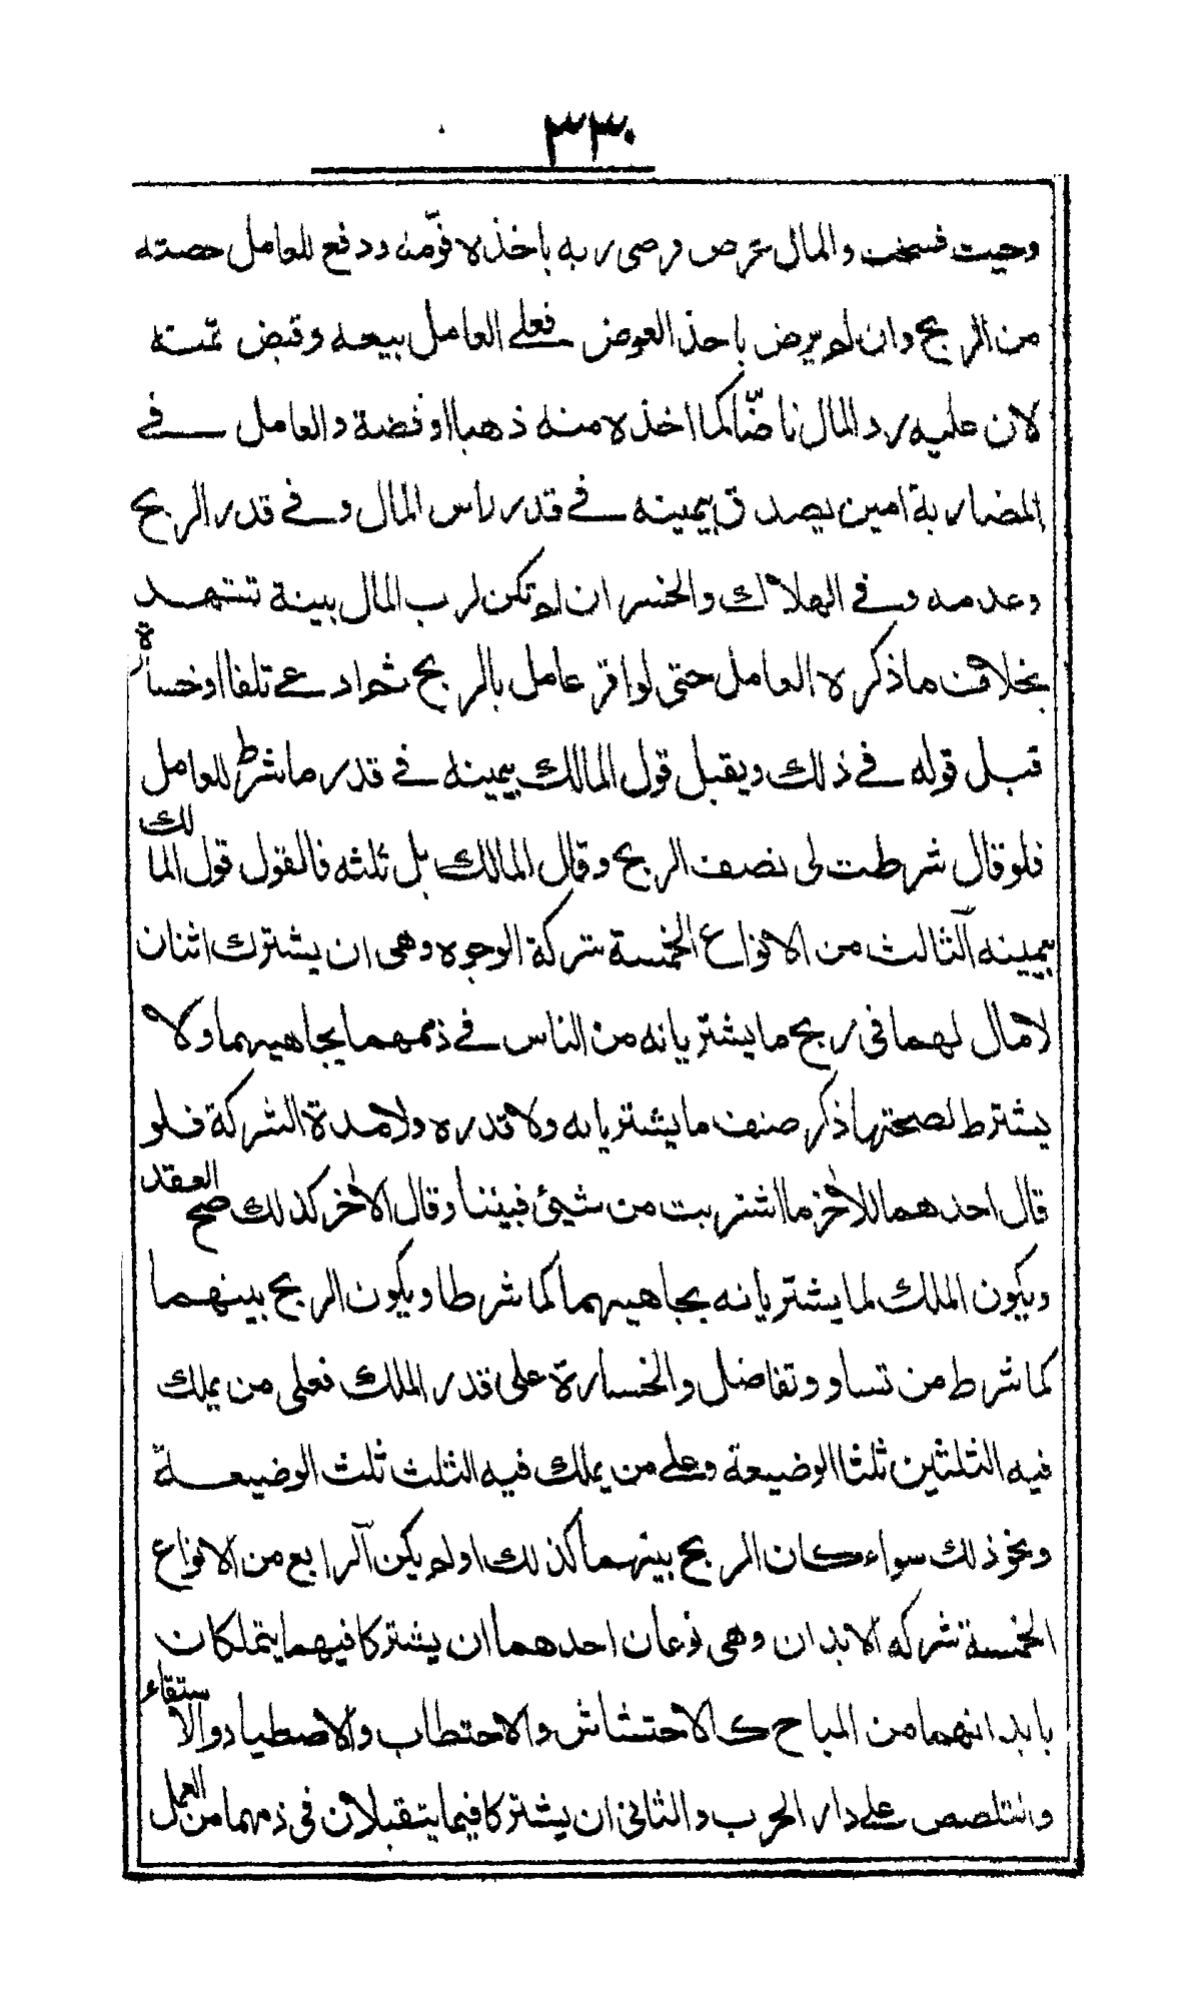 ٣٣٠
وحيث فسخت والمال عرض فرضى ربه باخذه قوّمه ودفع للعامل حصته
من الربح وان لم يرض باخذ العوض فعلے العامل بيعه وقبض ثمنه
لان عليه رد المال ناضّا كما اخذه منه ذهبا او فضة والعامل فے
المضاربة امين يصدق بيمينه فے قدر راس المال وفے قدر الربح
وعدمه وفے الهلاك والخسران لم تكن لرب المال بينة تشهد
بخلاف ماذكره العامل حتى لو اقر عامل بالربح ثم ادعے تلفا اوخسارة
قبل قوله فے ذلك ويقبل قول المالك بيمينه فے قدر ماشرط للعامل
فلوقال شرطت لى نصف الربح وقال المالك بل ثلثه فالقول قول المالك
بيمينه الثالث من الانواع الخمسة شركة الوجوه وهى ان يشترك اثنان
لامال لهما فى ربح مايشتريانه من الناس فے ذممهما بجاهيهما ولا
يشترط لصحتها ذكر صنف مايشتريانه ولا قدره ولا مدة الشركة فلو
قال احدهما للأخر مااشتريت من شيئ فبيننا وقال الأخر كذلك صح العقد
ويكون الملك لما يشتريانه بجاهيهما كما شرطا ويكون الربح بينهما
كما شرط من تساو وتفاضل والخسارة على قدر الملك فعلى من يملك
فيه الثلثين ثلثا الوضيعة وعلے من يملك فيه الثلث ثلث الوضيعة
ونحو ذلك سواء كان الربح بينهما كذلك اولم يكن الرابع من الانواع
الخمسة شركه الابدان وهى نوعان احدهما ان يشتركا فيهما يتملكان
بابدانهما من المباح كالاحتشاش والاحتطاب والاصطياد والاستقاء
والتلصص علے دار الحرب والثانى ان يشتركا فيما يتقبلان فى ذمهما من العمل